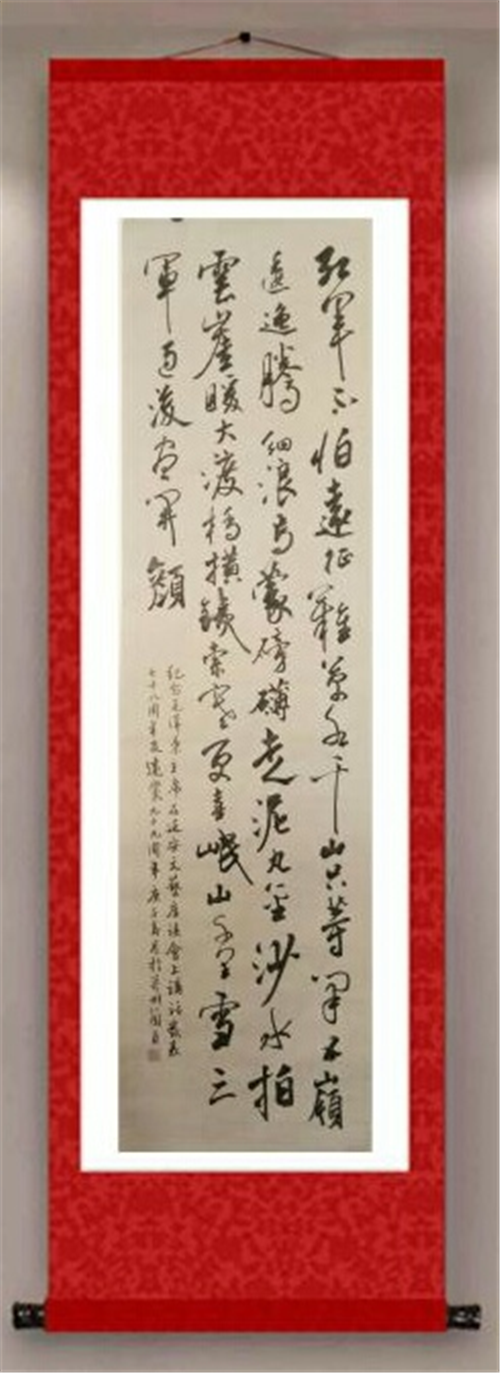 紅軍不怕遠征難萬水千山只等閑五嶺
逶迤騰細浪烏蒙磅礴走泥丸金沙水拍
雲崖暖大渡橋橫鐵索寒更喜岷山千里雪三
軍過後盡開顏
紀念毛澤東主席在延安文藝座談會上講話發表
七十八周年及建黨九十九周年庚子夏於